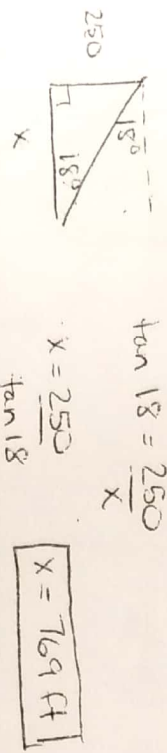 250
18°
18°
x
tan 18 = 250/x
x = 250/tan 18
x = 769 ft